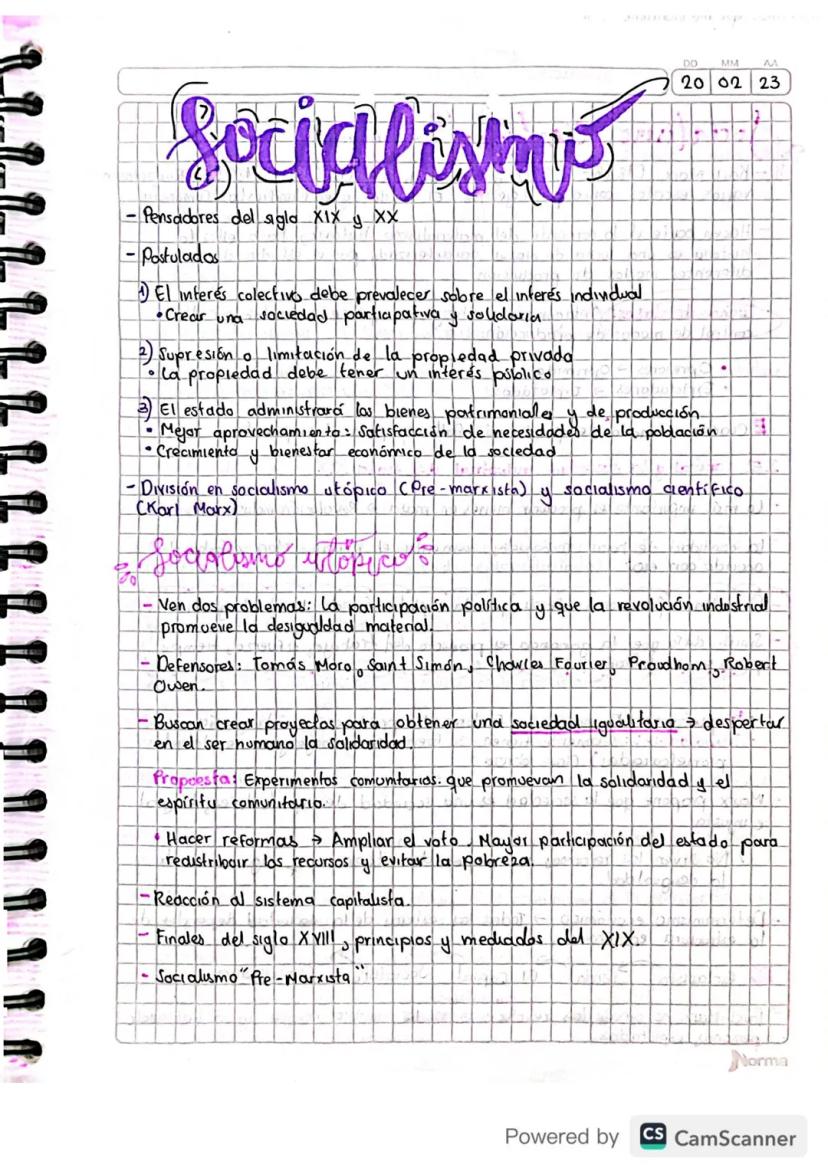 DD MM AA
20 02 23
Socialismo
- Pensadores del siglo XIX y XX
- Postulados
1) El interés colectivo debe prevalecer sobre el interés individual
• Crear una sociedad participativa y solidaria
2) Supresión o limitación de la propiedad privada
• La propiedad debe tener un interés público
3) El estado administrará los bienes patrimoniales y de producción
• Mejor aprovechamiento: satisfacción de necesidades de la población
• Crecimiento y bienestar económico de la sociedad
- División en socialismo utópico (Pre-marxista) y socialismo científico
(Karl Marx)
Socialismo utópico
- Ven dos problemas: La participación política y que la revolución industrial
promueve la desigualdad material.
- Defensores: Tomás Moro, Saint Simón, Charles Fourier, Proudhom, Robert
Owen.
- Buscan crear proyectos para obtener una sociedad igualitaria → despertar
en el ser humano la solidaridad.
Propuesta: Experimentos comunitarios. que promuevan la solidaridad y el
espíritu comunitario.
• Hacer reformas → Ampliar el voto. Mayor participación del estado para
redistribuir los recursos y evitar la pobreza.
- Reacción al sistema capitalista.
- Finales del siglo XVIII, principios y mediados del XIX.
- Socialismo "Pre-Marxista"
Norma
Powered by CS CamScanner